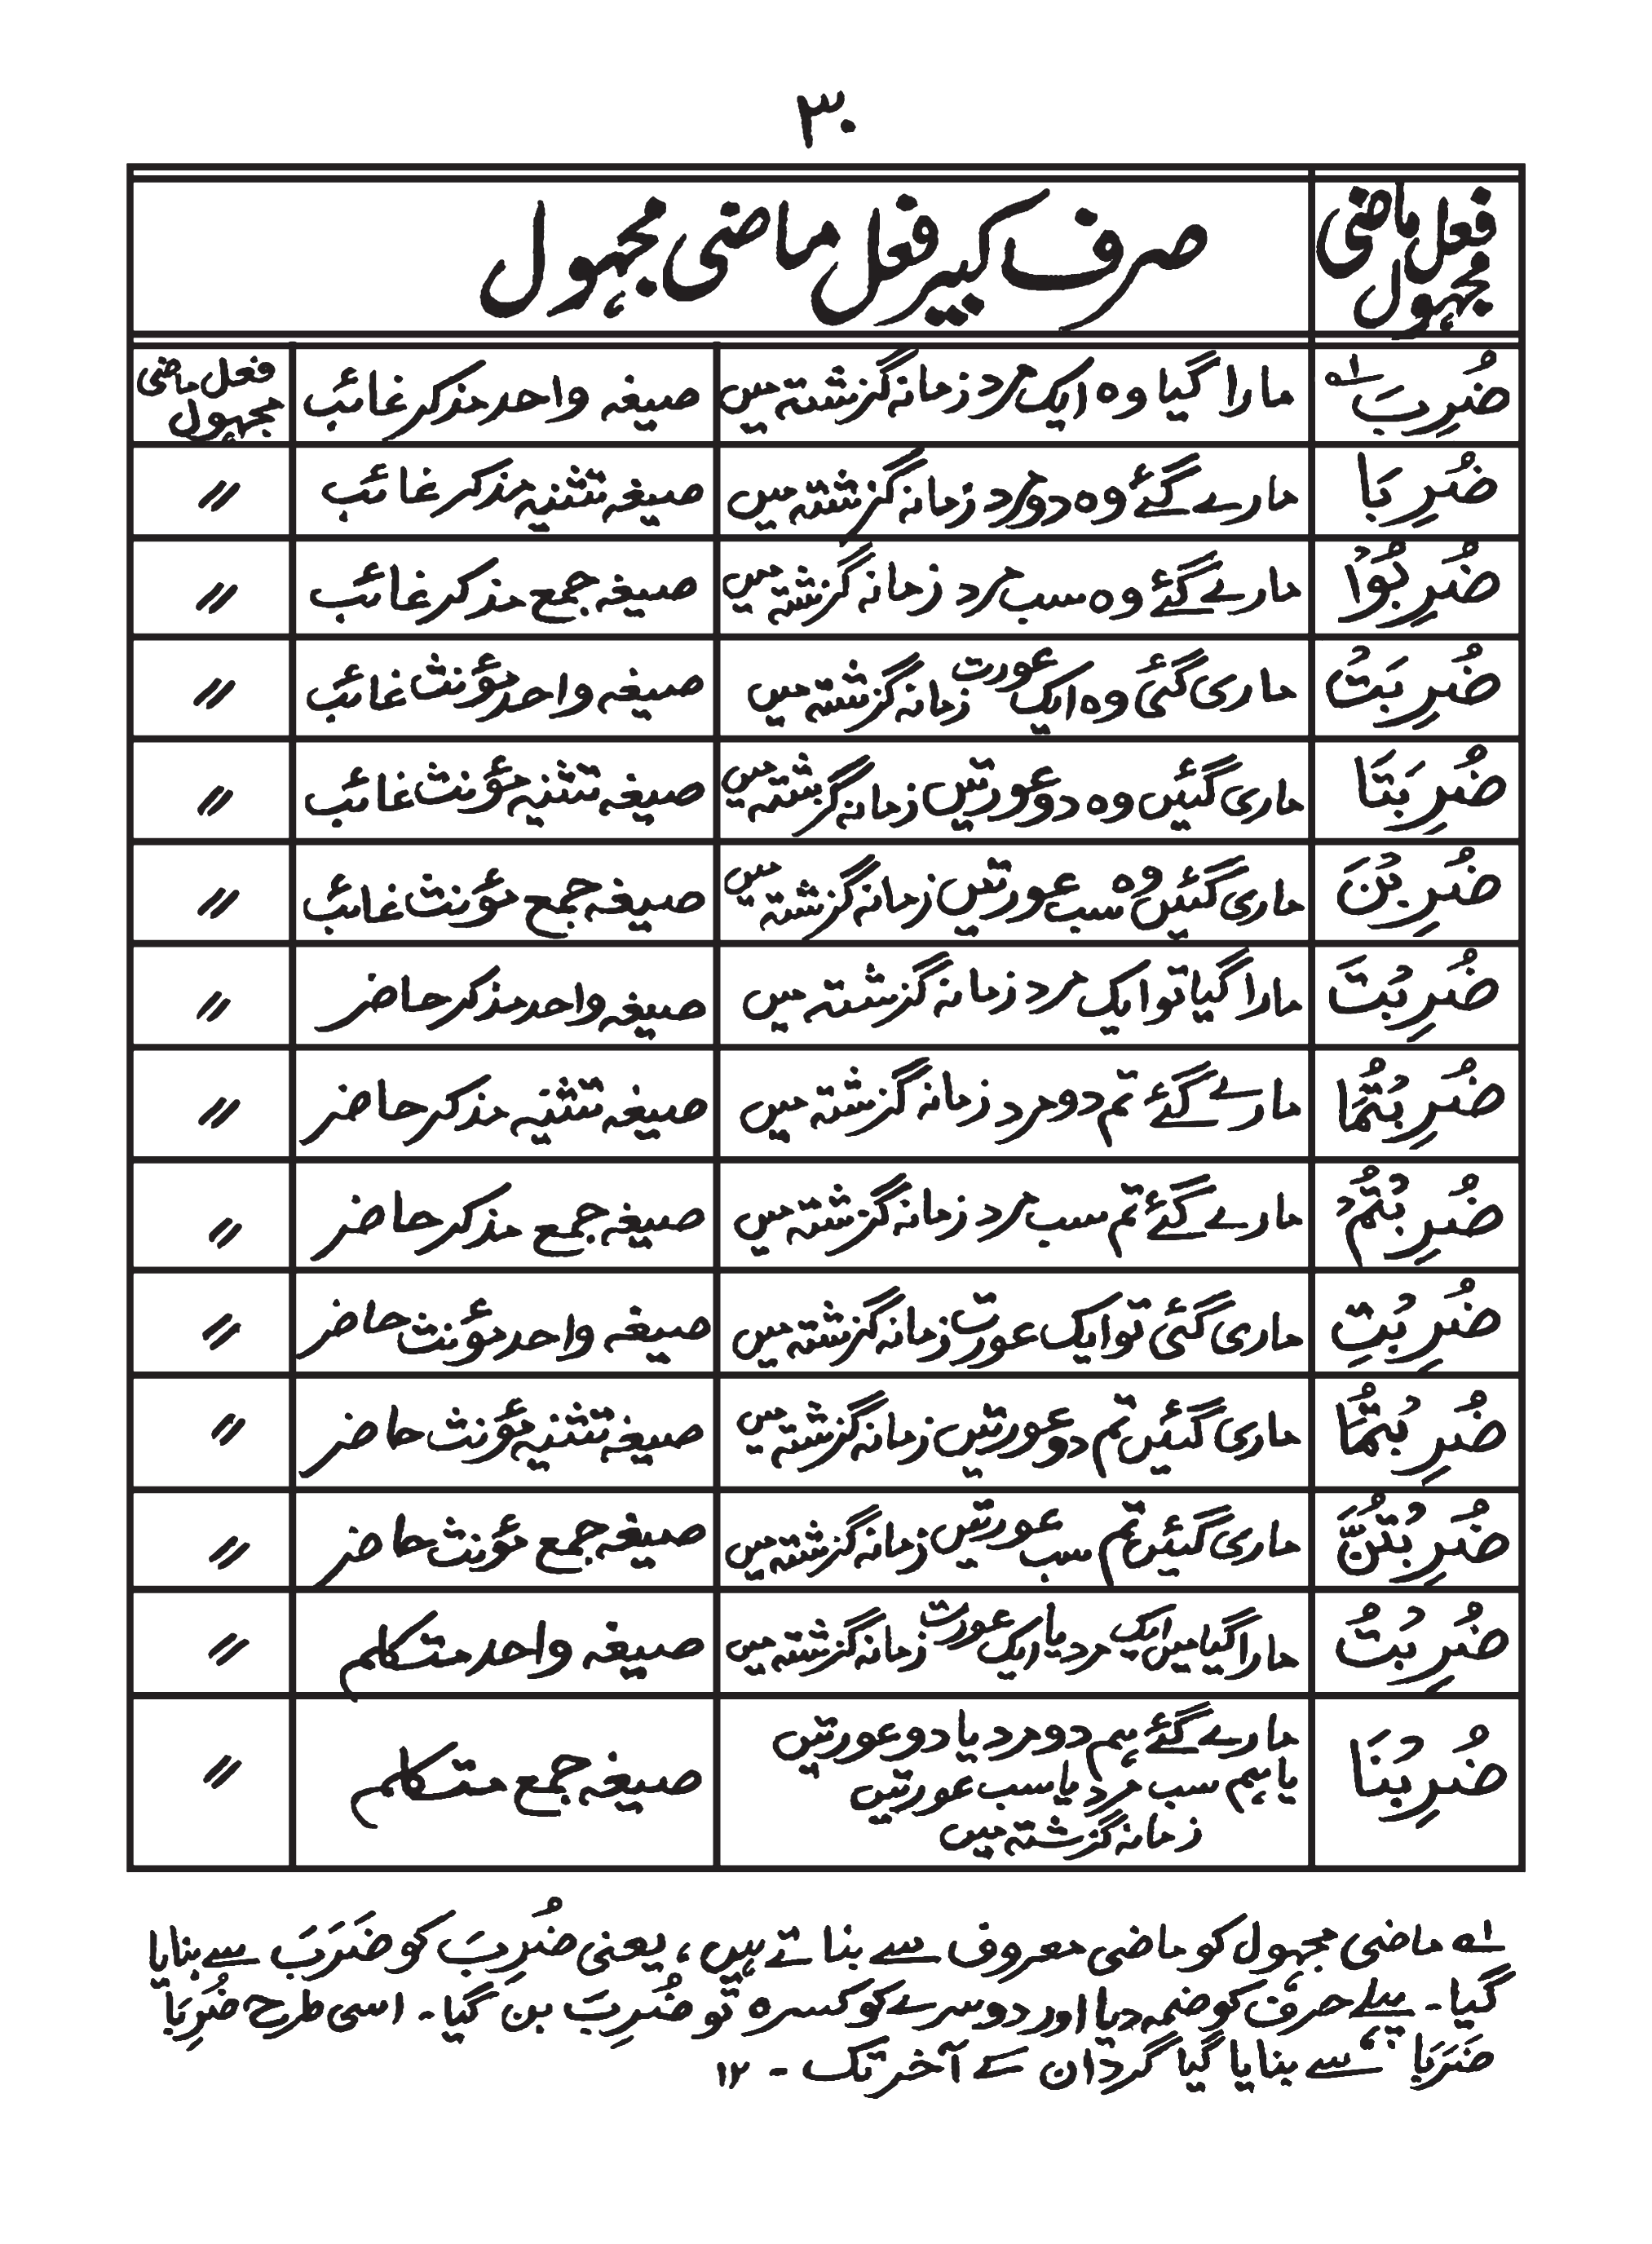 ۳۰
فعل ماضی مجہول صرف کبیر فعل ماضی مجہول
ضُرِبَ ؎۱ مارا گیا وہ ایک مرد زمانہ گزشتہ میں صیغہ واحد مذکر غائب فعل ماضی مجہول
ضُرِبَا مارے گئے وہ دو مرد زمانہ گزشتہ میں صیغہ تثنیہ مذکر غائب 〃
ضُرِبُوْا مارے گئے وہ سب مرد زمانہ گزشتہ میں صیغہ جمع مذکر غائب 〃
ضُرِبَتْ ماری گئی وہ ایک عورت زمانہ گزشتہ میں صیغہ واحد مؤنث غائب 〃
ضُرِبَتَا ماری گئیں وہ دو عورتیں زمانہ گزشتہ میں صیغہ تثنیہ مؤنث غائب 〃
ضُرِبْنَ ماری گئیں وہ سب عورتیں زمانہ گزشتہ میں صیغہ جمع مؤنث غائب 〃
ضُرِبْتَ مارا گیا تو ایک مرد زمانہ گزشتہ میں صیغہ واحد مذکر حاضر 〃
ضُرِبْتُمَا مارے گئے تم دو مرد زمانہ گزشتہ میں صیغہ تثنیہ مذکر حاضر 〃
ضُرِبْتُمْ مارے گئے تم سب مرد زمانہ گزشتہ میں صیغہ جمع مذکر حاضر 〃
ضُرِبْتِ ماری گئی تو ایک عورت زمانہ گزشتہ میں صیغہ واحد مؤنث حاضر 〃
ضُرِبْتُمَا ماری گئیں تم دو عورتیں زمانہ گزشتہ میں صیغہ تثنیہ مؤنث حاضر 〃
ضُرِبْتُنَّ ماری گئیں تم سب عورتیں زمانہ گزشتہ میں صیغہ جمع مؤنث حاضر 〃
ضُرِبْتُ مارا گیا میں ایک مرد یا ایک عورت زمانہ گزشتہ میں صیغہ واحد متکلم 〃
ضُرِبْنَا مارے گئے ہم دو مرد یا دو عورتیں
یا ہم سب مرد یا سب عورتیں
زمانہ گزشتہ میں صیغہ جمع متکلم 〃
؎۱ ماضی مجہول کو ماضی معروف سے بناتے ہیں، یعنی ضُرِبَ کو ضَرَبَ سے بنایا
گیا۔ پہلے حرف کو ضمہ دیا اور دوسرے کو کسرہ تو ضُرِبَ بن گیا۔ اسی طرح ضُرِبَا
ضَرَبَا سے بنایا گیا گردان کے آخر تک ۔ ۱۲